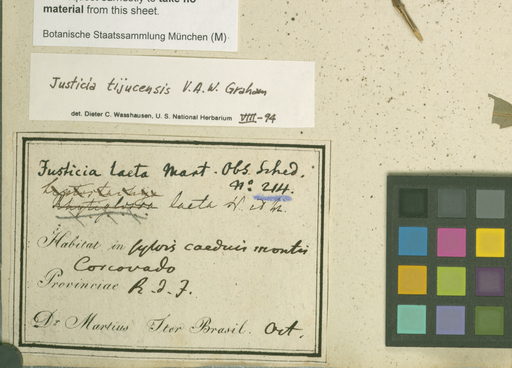 take no
material from this sheet.
Botanische Staatssammlung München (M)
Justicia tijucensis V.A.W. Graham
det. Dieter C. Wasshausen, U. S. National Herbarium VIII-94
Justicia laeta Mart. Obs. Sched.
No. 214.
laeta
Habitat in sylvis caeduis montis
Corcovado
Provinciae R. d. J.
Dr Martius Iter Brasil. Oct.